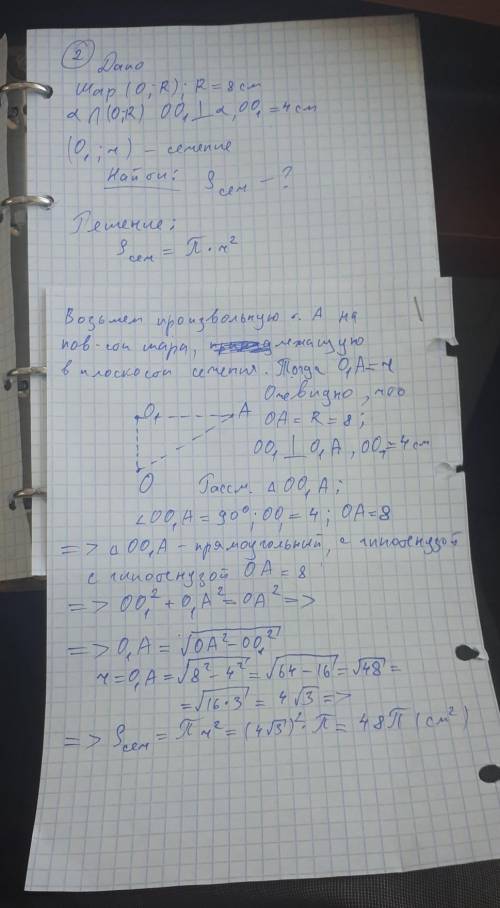 2
Дано
Шар (O; R); R = 8 см
α ∩ (O; R) OO₁ ⊥ α, OO₁ = 4 см
(O₁; r) – сечение
Найти: Sсеч – ?
Решение:
Sсеч = П · r²
Возьмем произвольную т. A на
пов-сти шара, лежащую
в плоскости сечения. Тогда O₁A = r
Очевидно, что
O₁ A
OA = R = 8;
OO₁ ⊥ O₁A, OO₁ = 4 см
O
Рассм. △ OO₁A;
∠OO₁A = 90°; OO₁ = 4; OA = 8
=> △ OO₁A – прямоугольный, с гипотенузой
с гипотенузой OA = 8
=> OO₁² + O₁A² = OA² =>
=> O₁A = √(OA² – OO₁²)
r = O₁A = √(8² – 4²) = √(64 – 16) = √48 =
= √(16 · 3) = 4√3 =>
=> Sсеч = Пr² = (4√3)² · П = 48П (см²)